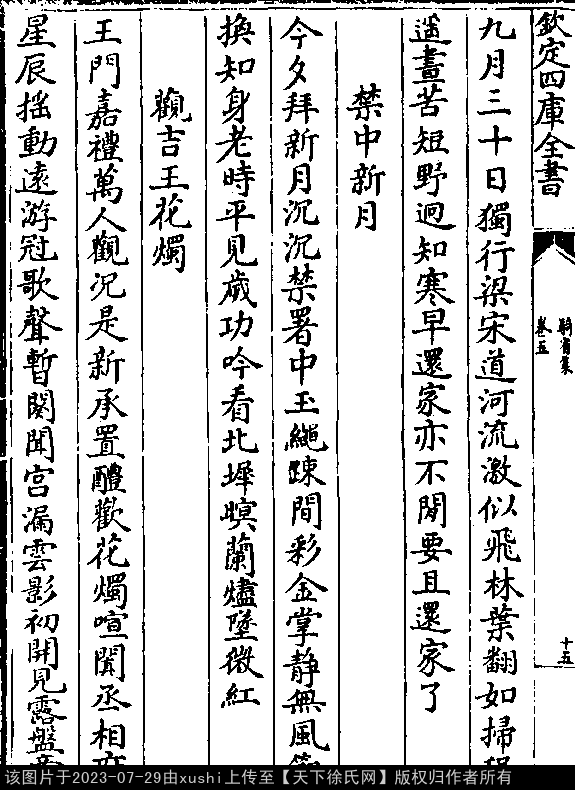 欽定四庫全書
騎省集
卷五
十五
九月三十日獨行梁宋道河流激似飛林葉翻如掃
遥晝苦短野迥知寒早還家亦不閒要且還家了
禁中新月
今夕拜新月沉沉禁署中玉繩踈間彩金掌静無風
換知身老時平見歳功吟看北墀暝蘭燼墜微紅
觀吉王花燭
王門嘉禮萬人觀況是新承置醴歡花燭喧闐丞相
星辰揺動遠游冠歌聲暫闋聞宫漏雲影初開見露盤
该图片于2023-07-29由xushi上传至【天下徐氏网】版权归作者所有